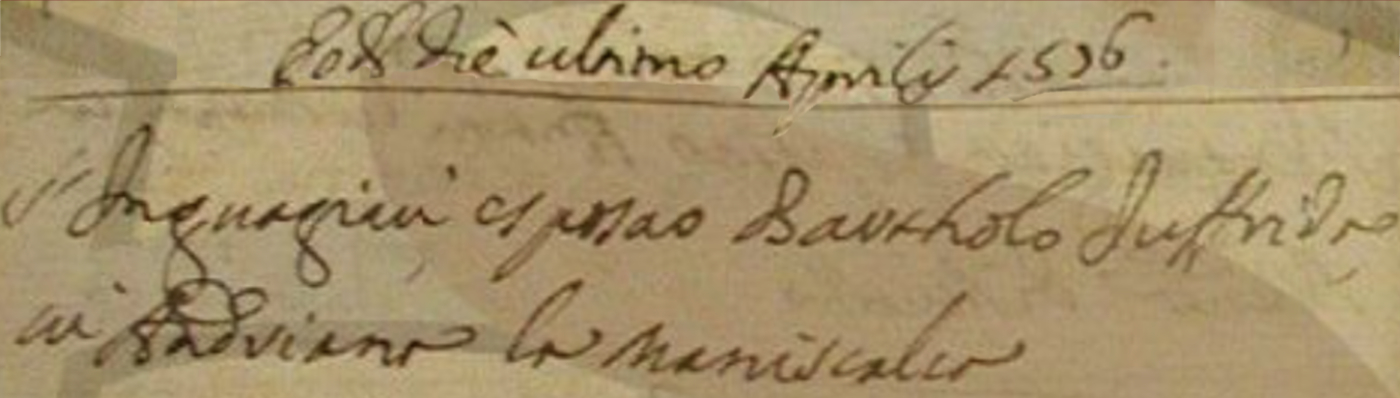 Eod die ultimo Aprilis 1576
Inguagiau e sposao Bartholo Juffrida
cu Andriana la Maniscalco